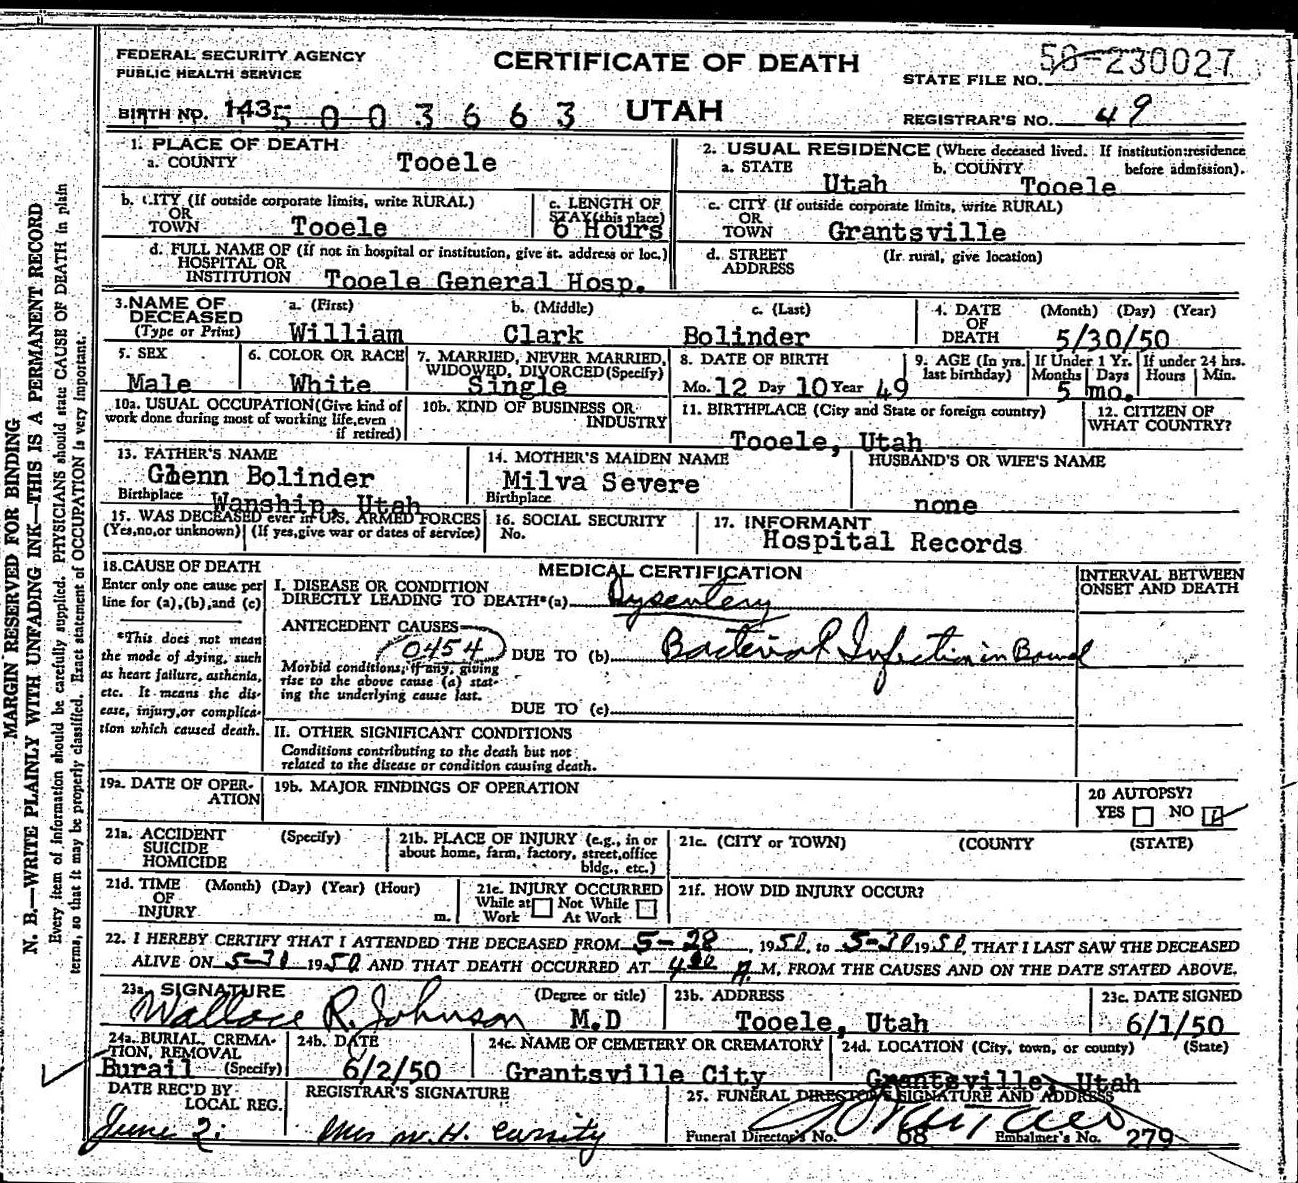 FEDERAL SECURITY AGENCY
PUBLIC HEALTH SERVICE
CERTIFICATE OF DEATH
STATE FILE NO. 50-230027
BIRTH NO. 143 5 0 0 3 6 6 3
UTAH
REGISTRAR'S NO. 49
MARGIN RESERVED FOR BINDING
N. B.—WRITE PLAINLY WITH UNFADING INK—THIS IS A PERMANENT RECORD
Every item of information should be carefully supplied. PHYSICIANS should state CAUSE OF DEATH in plain
terms, so that it may be properly classified. Exact statement of OCCUPATION is very important.
1. PLACE OF DEATH
a. COUNTY Tooele
2. USUAL RESIDENCE (Where deceased lived. If institution:residence
before admission).
a. STATE Utah b. COUNTY Tooele
b. CITY (If outside corporate limits, write RURAL)
OR
TOWN Tooele
c. LENGTH OF
STAY (this place)
6 Hours
c. CITY (If outside corporate limits, write RURAL)
OR
TOWN Grantsville
d. FULL NAME OF (If not in hospital or institution, give st. address or loc.)
HOSPITAL OR
INSTITUTION Tooele General Hosp.
d. STREET (If rural, give location)
ADDRESS
3. NAME OF DECEASED
(Type or Print)
a. (First) William
b. (Middle) Clark
c. (Last) Bolinder
4. DATE OF DEATH (Month) (Day) (Year)
5/30/50
5. SEX
Male
6. COLOR OR RACE
White
7. MARRIED, NEVER MARRIED,
WIDOWED, DIVORCED (Specify)
Single
8. DATE OF BIRTH
Mo. 12 Day 10 Year 49
9. AGE (In yrs. last birthday)
If Under 1 Yr. Months Days
5 mo.
If under 24 hrs. Hours Min.
10a. USUAL OCCUPATION (Give kind of
work done during most of working life, even
if retired)
10b. KIND OF BUSINESS OR
INDUSTRY
11. BIRTHPLACE (City and State or foreign country)
Tooele, Utah
12. CITIZEN OF
WHAT COUNTRY?
13. FATHER'S NAME
Glenn Bolinder
Birthplace Wanship, Utah
14. MOTHER'S MAIDEN NAME
Milva Severe
Birthplace
HUSBAND'S OR WIFE'S NAME
none
15. WAS DECEASED ever in U.S. ARMED FORCES
(Yes, no, or unknown) (If yes, give war or dates of service)
16. SOCIAL SECURITY
No.
17. INFORMANT
Hospital Records
18. CAUSE OF DEATH
Enter only one cause per
line for (a), (b), and (c)
*This does not mean
the mode of dying, such
as heart failure, asthenia,
etc. It means the dis-
ease, injury, or complica-
tion which caused death.
MEDICAL CERTIFICATION
INTERVAL BETWEEN
ONSET AND DEATH
I. DISEASE OR CONDITION
DIRECTLY LEADING TO DEATH*(a) Dysentery
ANTECEDENT CAUSES
0454
DUE TO (b) Bacterial Infection in Bowel
Morbid conditions, if any, giving
rise to the above cause (a) stat-
ing the underlying cause last.
DUE TO (c)
II. OTHER SIGNIFICANT CONDITIONS
Conditions contributing to the death but not
related to the disease or condition causing death.
19a. DATE OF OPER-
ATION
19b. MAJOR FINDINGS OF OPERATION
20 AUTOPSY?
YES NO
21a. ACCIDENT (Specify)
SUICIDE
HOMICIDE
21b. PLACE OF INJURY (e.g., in or
about home, farm, factory, street, office
bldg., etc.)
21c. (CITY or TOWN) (COUNTY (STATE)
21d. TIME (Month) (Day) (Year) (Hour)
OF
INJURY m.
21e. INJURY OCCURRED
While at Work Not While At Work
21f. HOW DID INJURY OCCUR?
22. I HEREBY CERTIFY THAT I ATTENDED THE DECEASED FROM 5-28, 1950, to 5-30 1950, THAT I LAST SAW THE DECEASED
ALIVE ON 5-30 1950 AND THAT DEATH OCCURRED AT 4:00 A. M. FROM THE CAUSES AND ON THE DATE STATED ABOVE.
23a. SIGNATURE (Degree or title)
Wallace R. Johnson M.D
23b. ADDRESS
Tooele, Utah
23c. DATE SIGNED
6/1/50
24a. BURIAL, CREMA-
TION, REMOVAL
Burail (Specify)
24b. DATE
6/2/50
24c. NAME OF CEMETERY OR CREMATORY
Grantsville City
24d. LOCATION (City, town, or county) (State)
Grantsville, Utah
DATE REC'D BY
LOCAL REG.
June 2
REGISTRAR'S SIGNATURE
Mrs W. H. Cassity
25. FUNERAL DIRECTOR'S SIGNATURE AND ADDRESS
Funeral Director's No. 68 Embalmer's No. 279